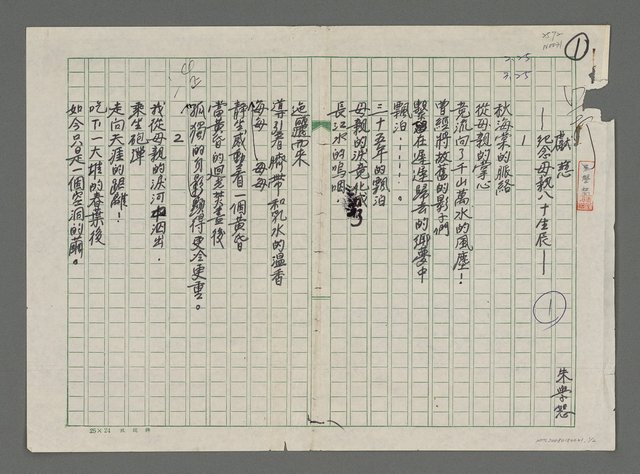 1
獻慈
—紀念母親八十生辰—
1
朱學恕
3.25
3.25
1
秋海棠的脈絡
從母親的掌心
竟流向了千山萬水的風塵！
曾經將故舊的影子們
繫在遙遙歸去的鄉夢中
飄泊……。
三十五年的飄泊
母親的淚竟化成
長江水的嗚咽
迤邐而來
導引著臍帶和乳水的溫香
每每——每每
靜坐或動著一個黃昏
當黃昏的迴光焚盡後
孤獨的身影顯得更冷更重。
2
我從母親的淚河中泅出，
乘坐砲彈
走向天涯的距離！
吃下一大堆的春葉後
如今只是一個空洞的繭。
25×24